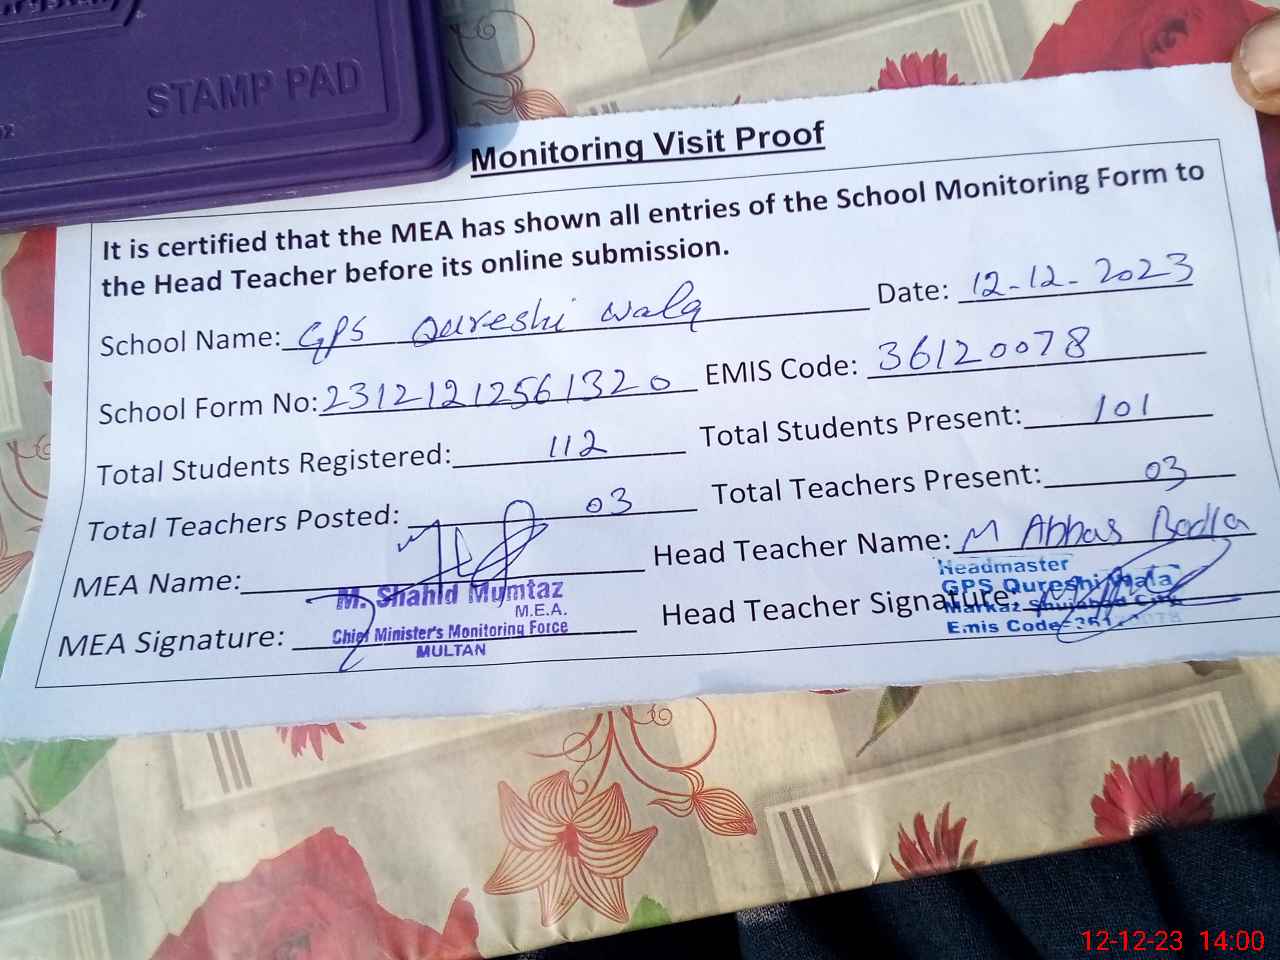 STAMP PAD
Monitoring Visit Proof
It is certified that the MEA has shown all entries of the School Monitoring Form to
the Head Teacher before its online submission.
School Name: GPS Qureshi Wala Date: 12-12-2023
School Form No: 2312121256132 0 EMIS Code: 36120078
Total Students Registered: 112 Total Students Present: 101
Total Teachers Posted: 03 Total Teachers Present: 03
MEA Name: Head Teacher Name: M Abbas Badla
M. Shahid Mumtaz
M.E.A.
Chief Minister's Monitoring Force
MULTAN
MEA Signature: Head Teacher Signature:
Headmaster
GPS Qureshi Wala
Markaz
Emis Code=
12-12-23 14:00